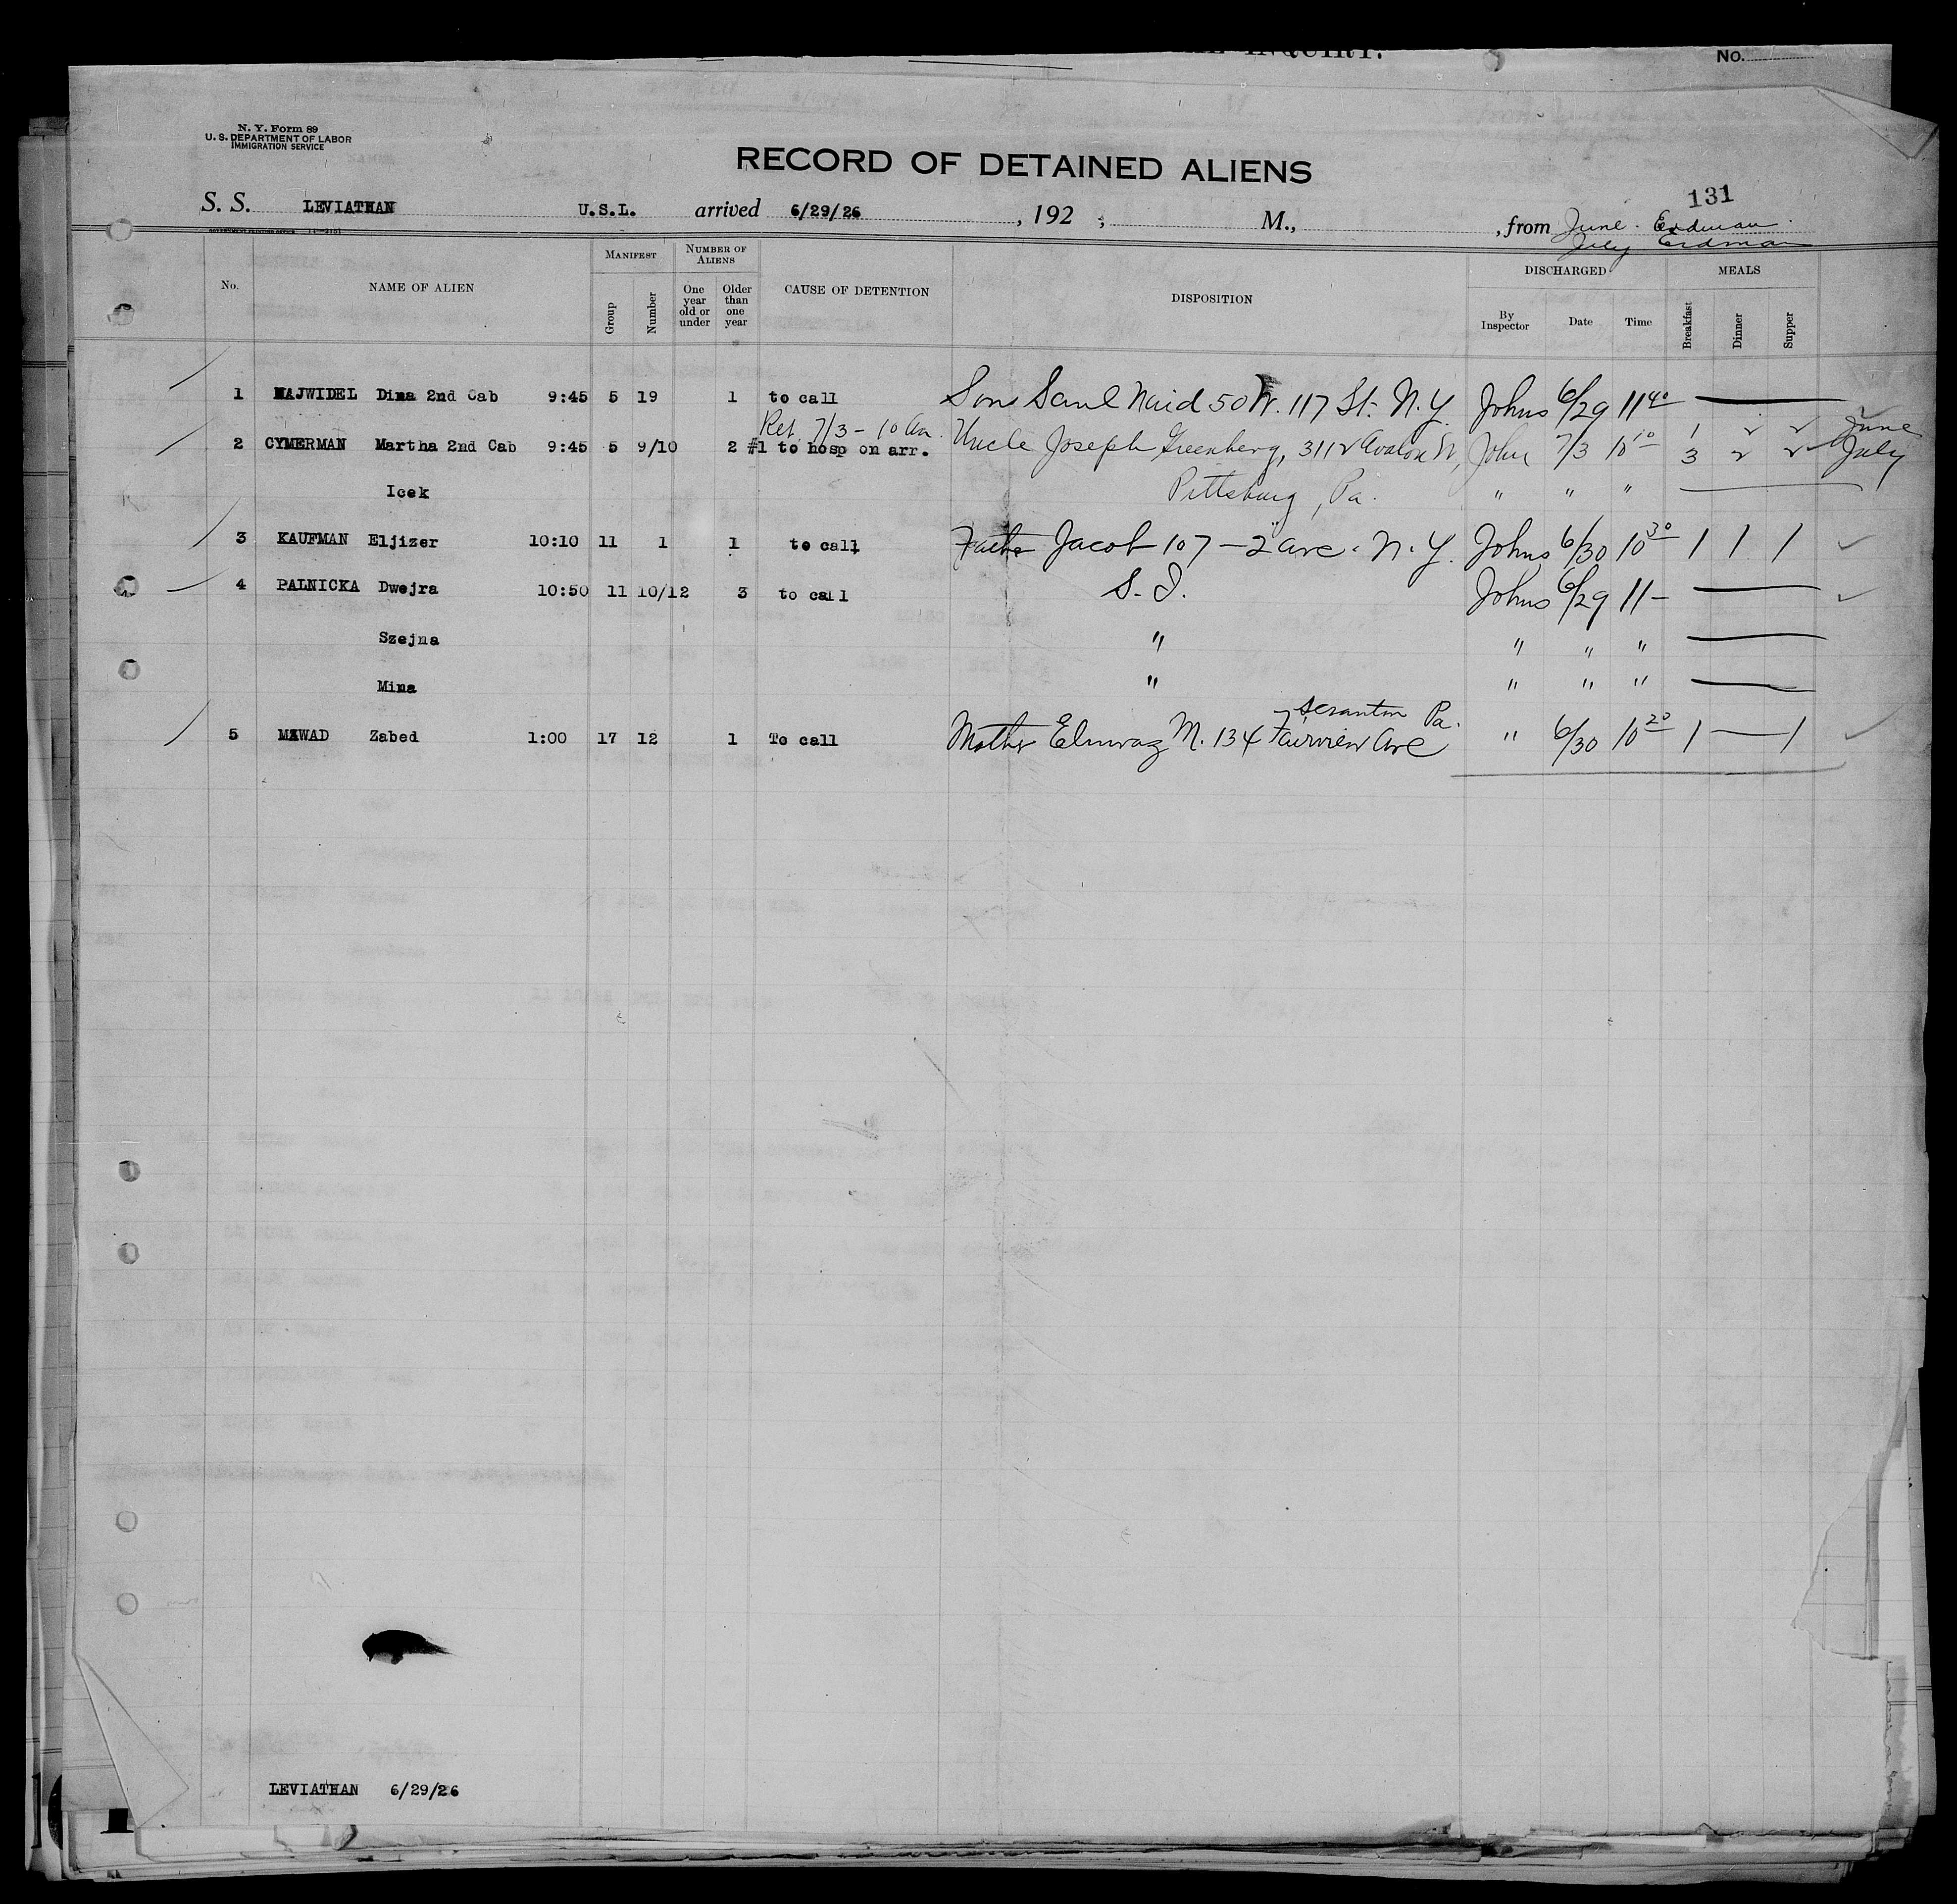 INQUIRY.
No.
N. Y. Form 89
U. S. DEPARTMENT OF LABOR
IMMIGRATION SERVICE
RECORD OF DETAINED ALIENS
131
S. S. LEVIATHAN U.S.L. arrived 6/29/26 , 192 ; M., , from June. Erdman
July Erdman
No. NAME OF ALIEN MANIFEST Group Number NUMBER OF ALIENS One year old or under Older than one year CAUSE OF DETENTION DISPOSITION DISCHARGED By Inspector Date Time MEALS Breakfast Dinner Supper
1 NAJWIDEL Dina 2nd Cab 9:45 5 19 1 to call Son Saul Naid 50 W. 117 St. N.Y. Johns 6/29 11 40
Ret 7/3 - 10 am. 1 2 2 June
2 CYMERMAN Martha 2nd Cab 9:45 5 9/10 2 #1 to hosp on arr. Uncle Joseph Greenberg, 3112 Avalon St, John 7/3 10 10 3 2 2 July
Icek Pittsburg, Pa. " " "
3 KAUFMAN Eljizer 10:10 11 1 1 to call Father Jacob 107 - 2" ave. N.Y. Johns 6/30 10 30 1 1 1
4 PALNICKA Dwejra 10:50 11 10/12 3 to call S. I. Johns 6/29 11 -
Szejna " " " "
Mina " " " "
Scranton Pa.
5 MAWAD Zabed 1:00 17 12 1 To call Mother M. 134 Fairview Ave " 6/30 10 20 1 — 1
LEVIATHAN 6/29/26